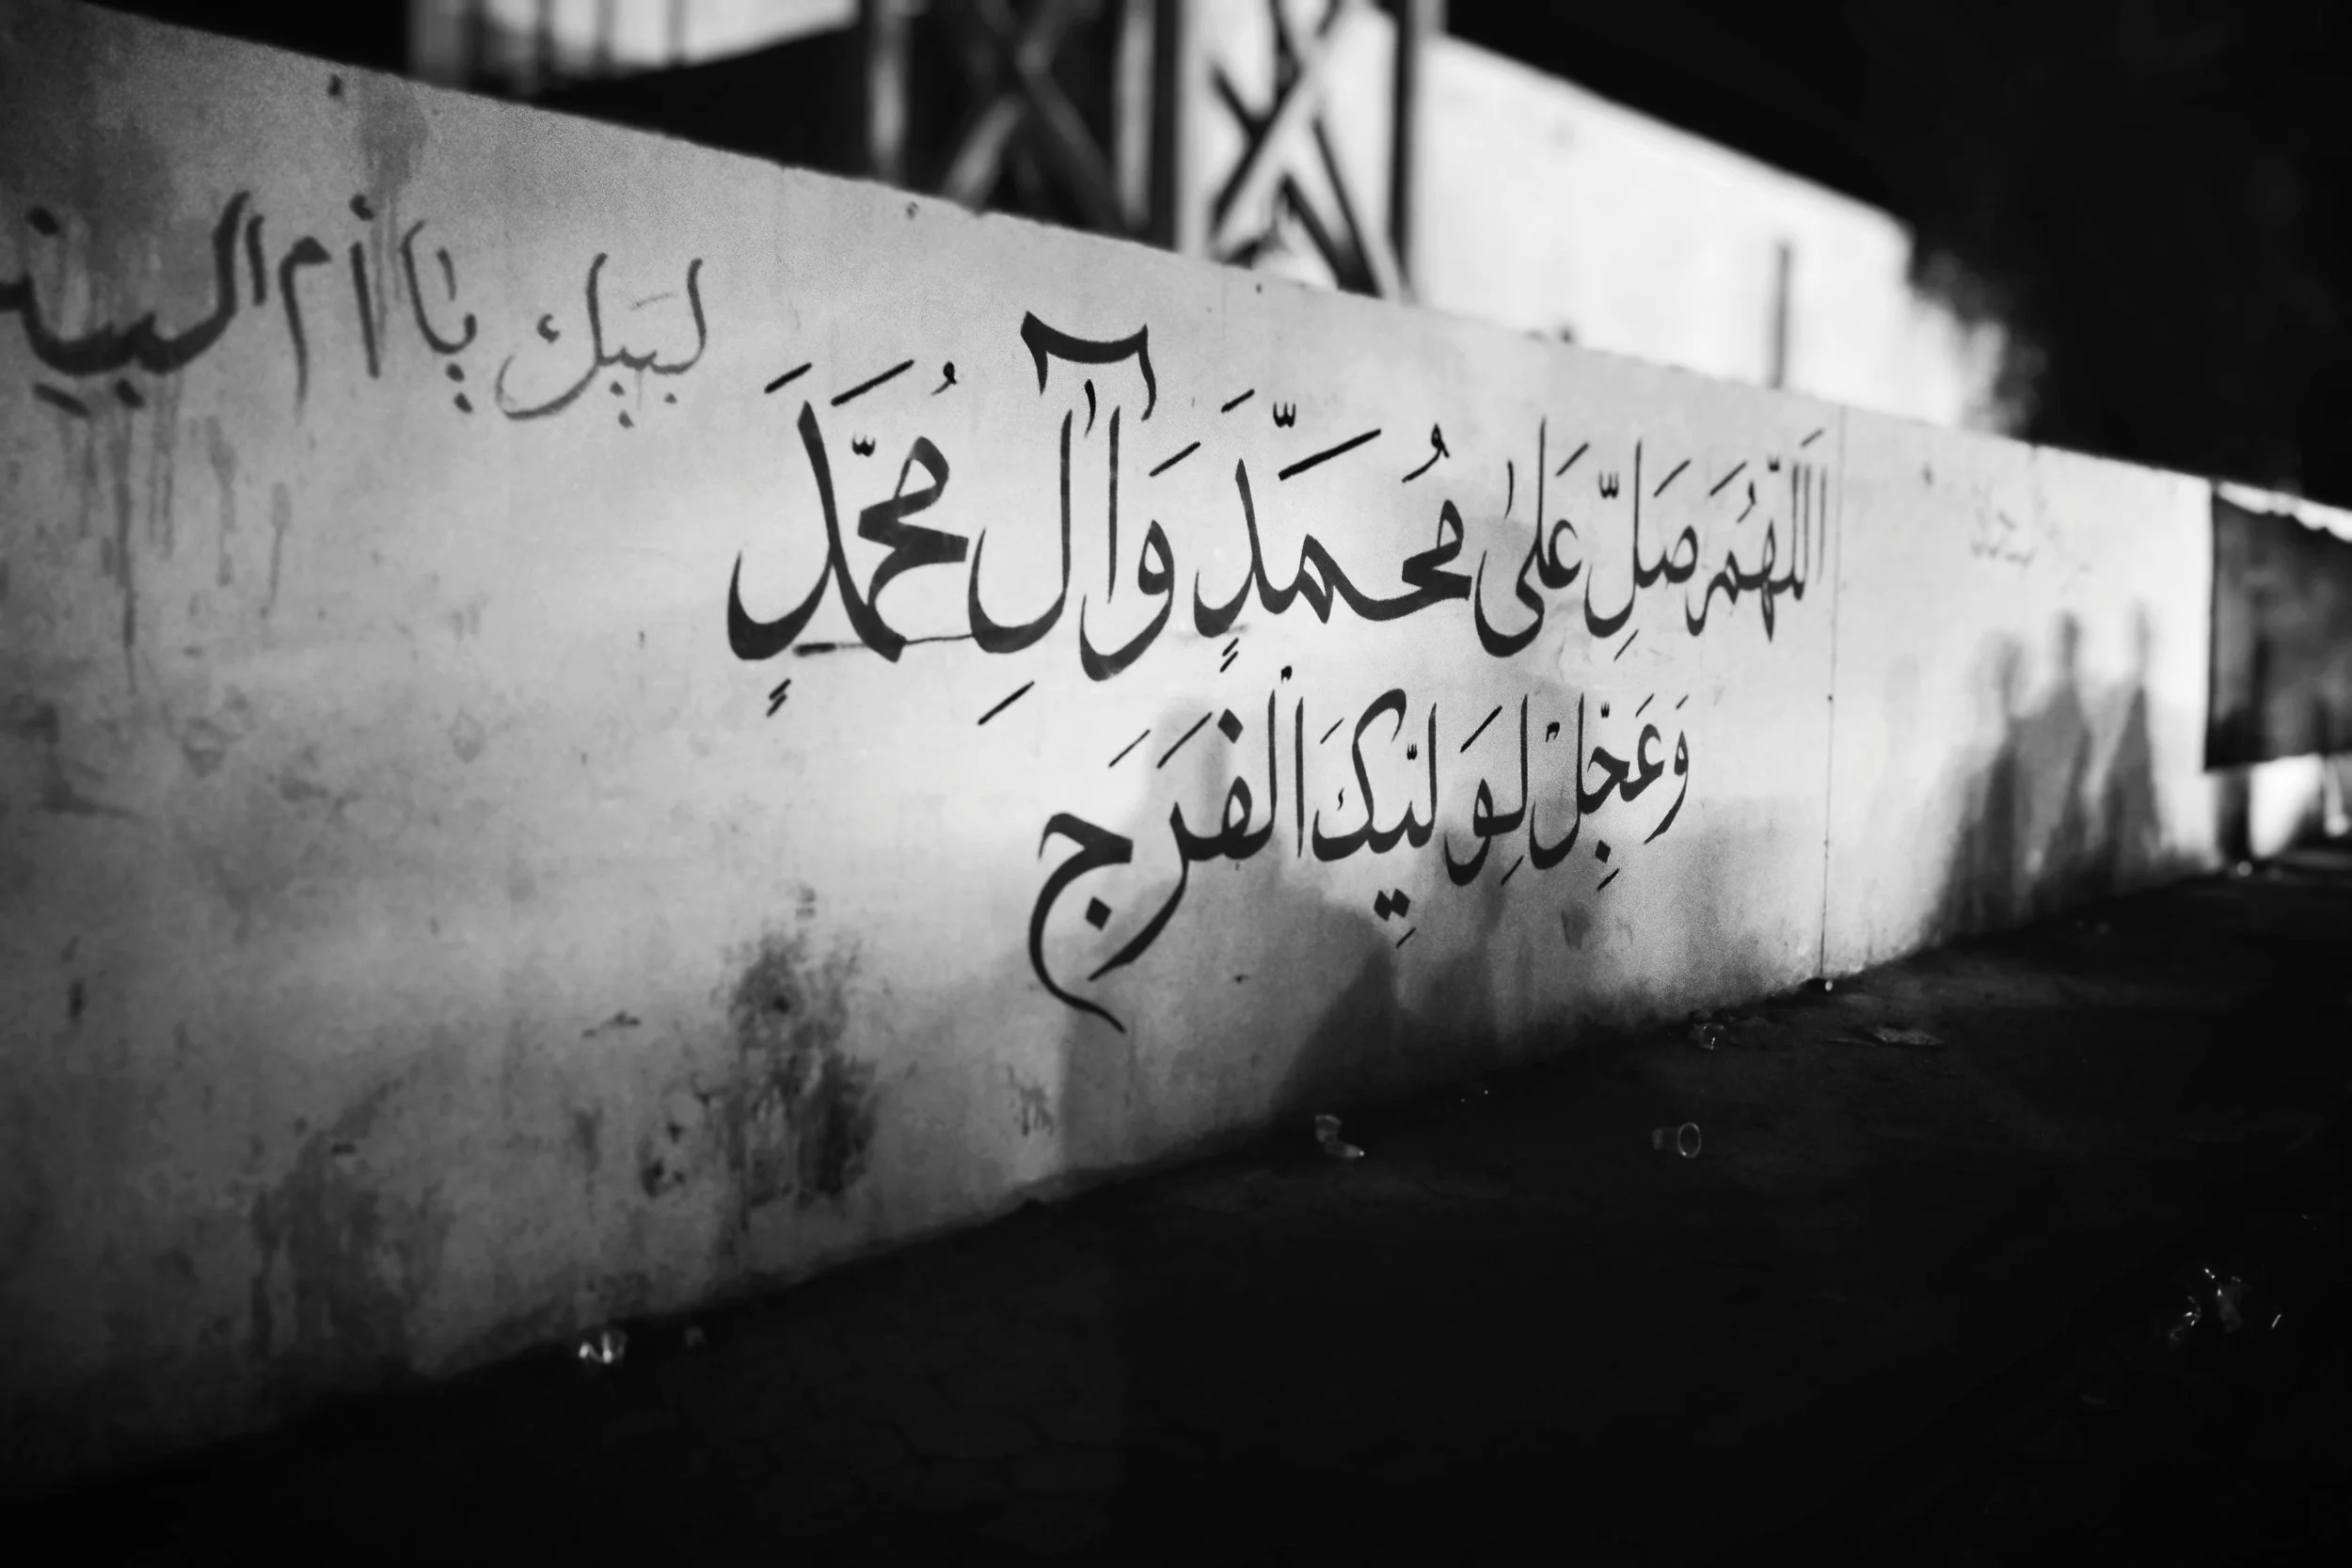 اَللّٰهُمَّ صَلِّ عَلىٰ مُحَمَّدٍ وَآلِ مُحَمَّدٍ
وَعَجِّلْ لِوَلِيِّكَ الْفَرَج
لبيك يا أم